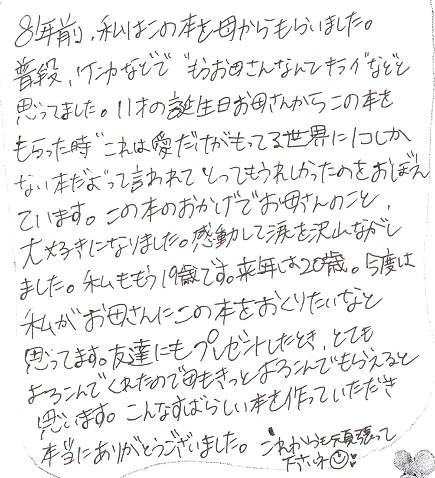 8年前、私はこの本を母からもらいました。
普段、ケンカなどで"もうお母さんなんてキライ"などと
思ってました。11才の誕生日お母さんからこの本を
もらった時"これは愛だけがもってる世界に1コしか
ない本だよ"って言われてとってもうれしかったのをおぼえ
ています。この本のおかげでお母さんのこと、
大好きになりました。感動して涙を沢山ながし
ました。私ももう19歳です。来年は20歳。今度は
私がお母さんにこの本をおくりたいなと
思ってます。友達にもプレゼントしたとき、とても
よろこんでくれたので母もきっとよろこんでもらえると
思います。こんなすばらしい本を作っていただき
本当にありがとうございました。これからも頑張って
下さいネ